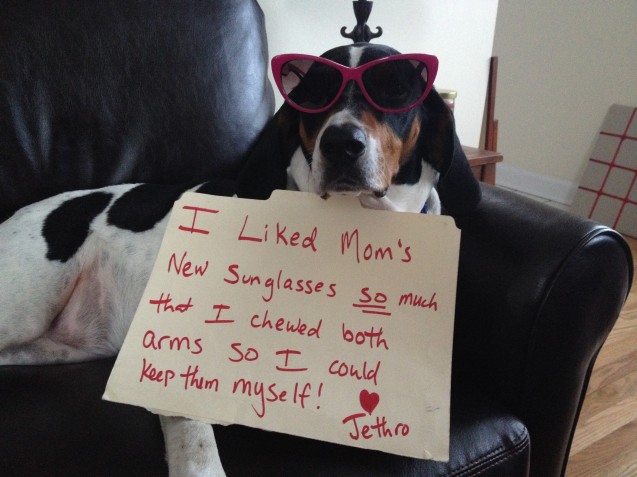 I Liked Mom's
New Sunglasses so much
that I chewed both
arms so I could
keep them myself!
Jethro